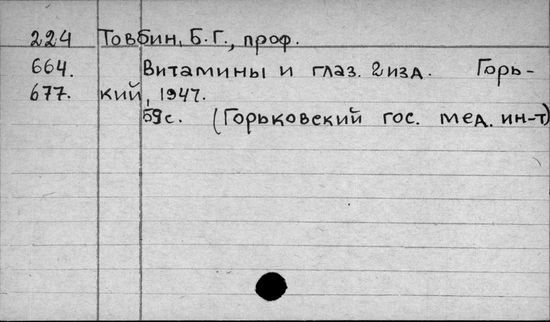 224 Товбин, Б.Г., проф.
664. Витамины и глаз. 2 изд. Горь-
677. кий, 1947.
59с. (Горьковский гос. мед. ин-т)